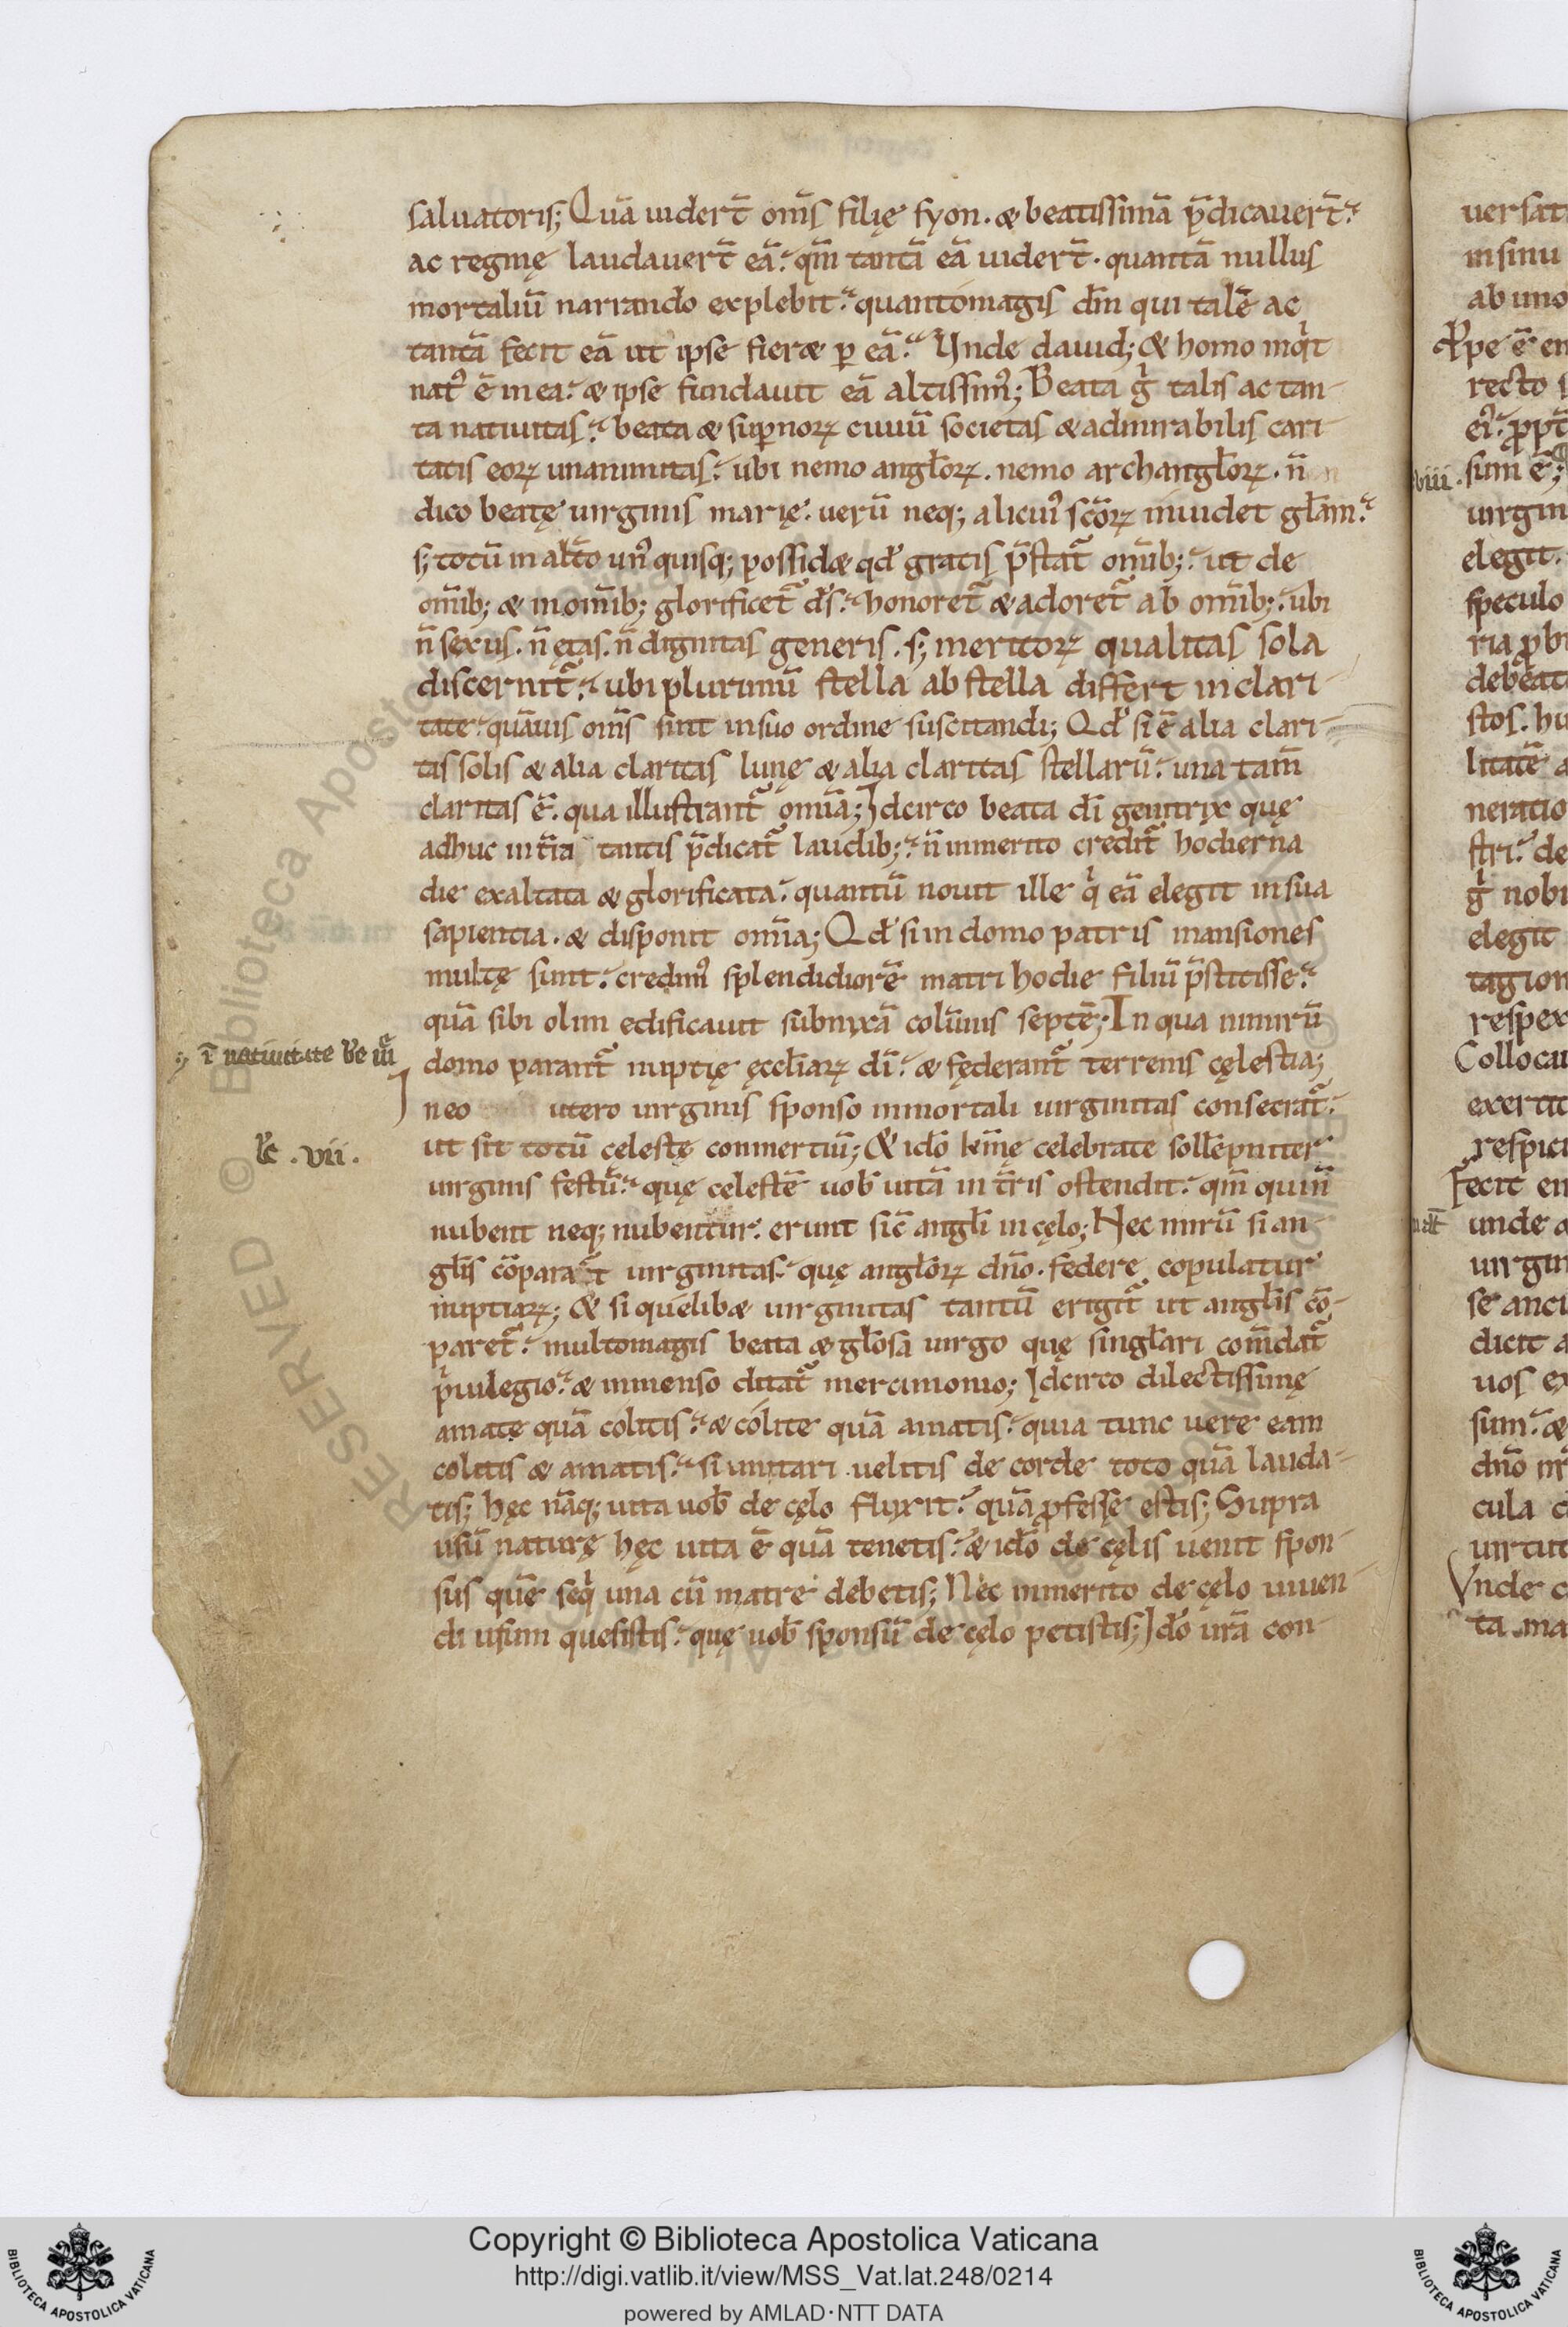 saluatoris; Quā uidert̄ om̄s filię syon. & beatissimā p̄dicauert̄.
ac reginę laudauert̄ eā. qm̄ tantā eā uidert̄. quantā nullus
mortaliū narrando explebit. quantomagis dm̄ qui talē ac
tantā fecit eā ut ipse fier& ꝑ eā. Vnde dauid; & homo inq̇t
natꝰ ē in ea. & ipse fundauit eā altissimꝰ; Beata g̊ talis ac tan-
ta natiuitas. beata & suꝑnoꝝ ciuiū societas & admirabilis cari-
tatis eoꝝ unanimitas. ubi nemo angl̄oꝝ. nemo archangl̄oꝝ. n̄
dico beatę uirginis marię. uerū neq; alicuiꝰ sc̄oꝝ inuidet gl̄am.
s; totū in alto unꝰquisq; possid& qd̄ gratis p̄stat̄ omīb; ut de
omīb; & in omīb; glorificet̄ ds̄. honoret̄ & adoret̄ ab omīb; ubi
n̄ sexus. n̄ ętas. n̄ dignitas generis. s; meritoꝝ qualitas sola
discernit̄. ubi plurimū stella ab stella differt in clari-
tate. quāuis om̄s sint in suo ordine suscitandi; Qd̄ si ē alia clari-
tas solis & alia claritas lunę & alia claritas stellarū. una tam̄
claritas ē. qua illustrant̄ omīa; Idcirco beata dī genitrix quę
adhuc in t̄ra tantis p̄dicat̄ laudib; n̄ inmerito credit̄ hodierna
die exaltata & glorificata. quantū nouit ille q̇ eā elegit in sua
sapientia. & disponit omīa; Qd̄ si in domo patris mansiones
multę sunt. credimꝰ splendidiorē matri hodie filiū p̄stitisse.
quā sibi olim edificauit subnixā colūnis septē; In qua nimirū
domo parant̄ nuptię ęccl̄iaꝝ dī. & fęderant̄ terrenis cęlestia;
neo utero uirginis sponso inmortali uirginitas consecrat̄.
ut sit totū cęlestę conmertiū; & idō kmę celebrate sollēpniter
uirginis festū. quę celestē uob̄ uitā in t̄ris ostendit. qm̄ qui n̄
nubent neq; nubentur. erunt sic̄ angl̄i in cęlo; Nec mirū si an-
gl̄is cōparat̄ uirginitas. quę angl̄oꝝ dn̄o. federe copulatur
nuptiaꝝ; & si quęlib& uirginitas tantū erigit̄ ut angl̄is cō-
paret̄. multomagis beata & gl̄osa uirgo quę singl̄ari com̄dat̄
ṗuilegio. & inmenso ditat̄ mercimonio; Idcirco dilectissimę
amate quā colitis. & colite quā amatis. quia tunc uere eam
colitis & amatis. si imitari uelitis de corde toto quā lauda-
tis; hęc nāq; uita uob̄ de cęlo fluxit. quā ꝓfessę estis; Supra
usū naturę hęc uita ē quā tenetis. & idō de cęlis uenit spon-
sus quē seq̇ una cū matre debetis; Nec inmerito de cęlo uiuen-
di usum quesistis. quę uob̄ sponsū de cęlo petistis; Idō ur̄a con-
ī natiuitate be
lc̄ .vii.
uersat
in sinu
ab uno
recto s
.viii.
uirgin
elegit.
speculo
debeat
stos. hu
litatē a
neratio
stri. de
g̊ nobi
elegit
tagion
respex
Collocu
exercit
respici
Fecit en
unde a
uirgin
se anci
dicit a
uos ex
sum. &
dn̄o nr̄
cula c
uirtut
Vnde c
ta. ma
© Biblioteca Apostolica Vaticana
RESERVED
Copyright © Biblioteca Apostolica Vaticana
http://digi.vatlib.it/view/MSS_Vat.lat.248/0214
powered by AMLAD·NTT DATA
BIBLIOTECA APOSTOLICA VATICANA
BIBLIOTECA APOSTOLICA VATICANA